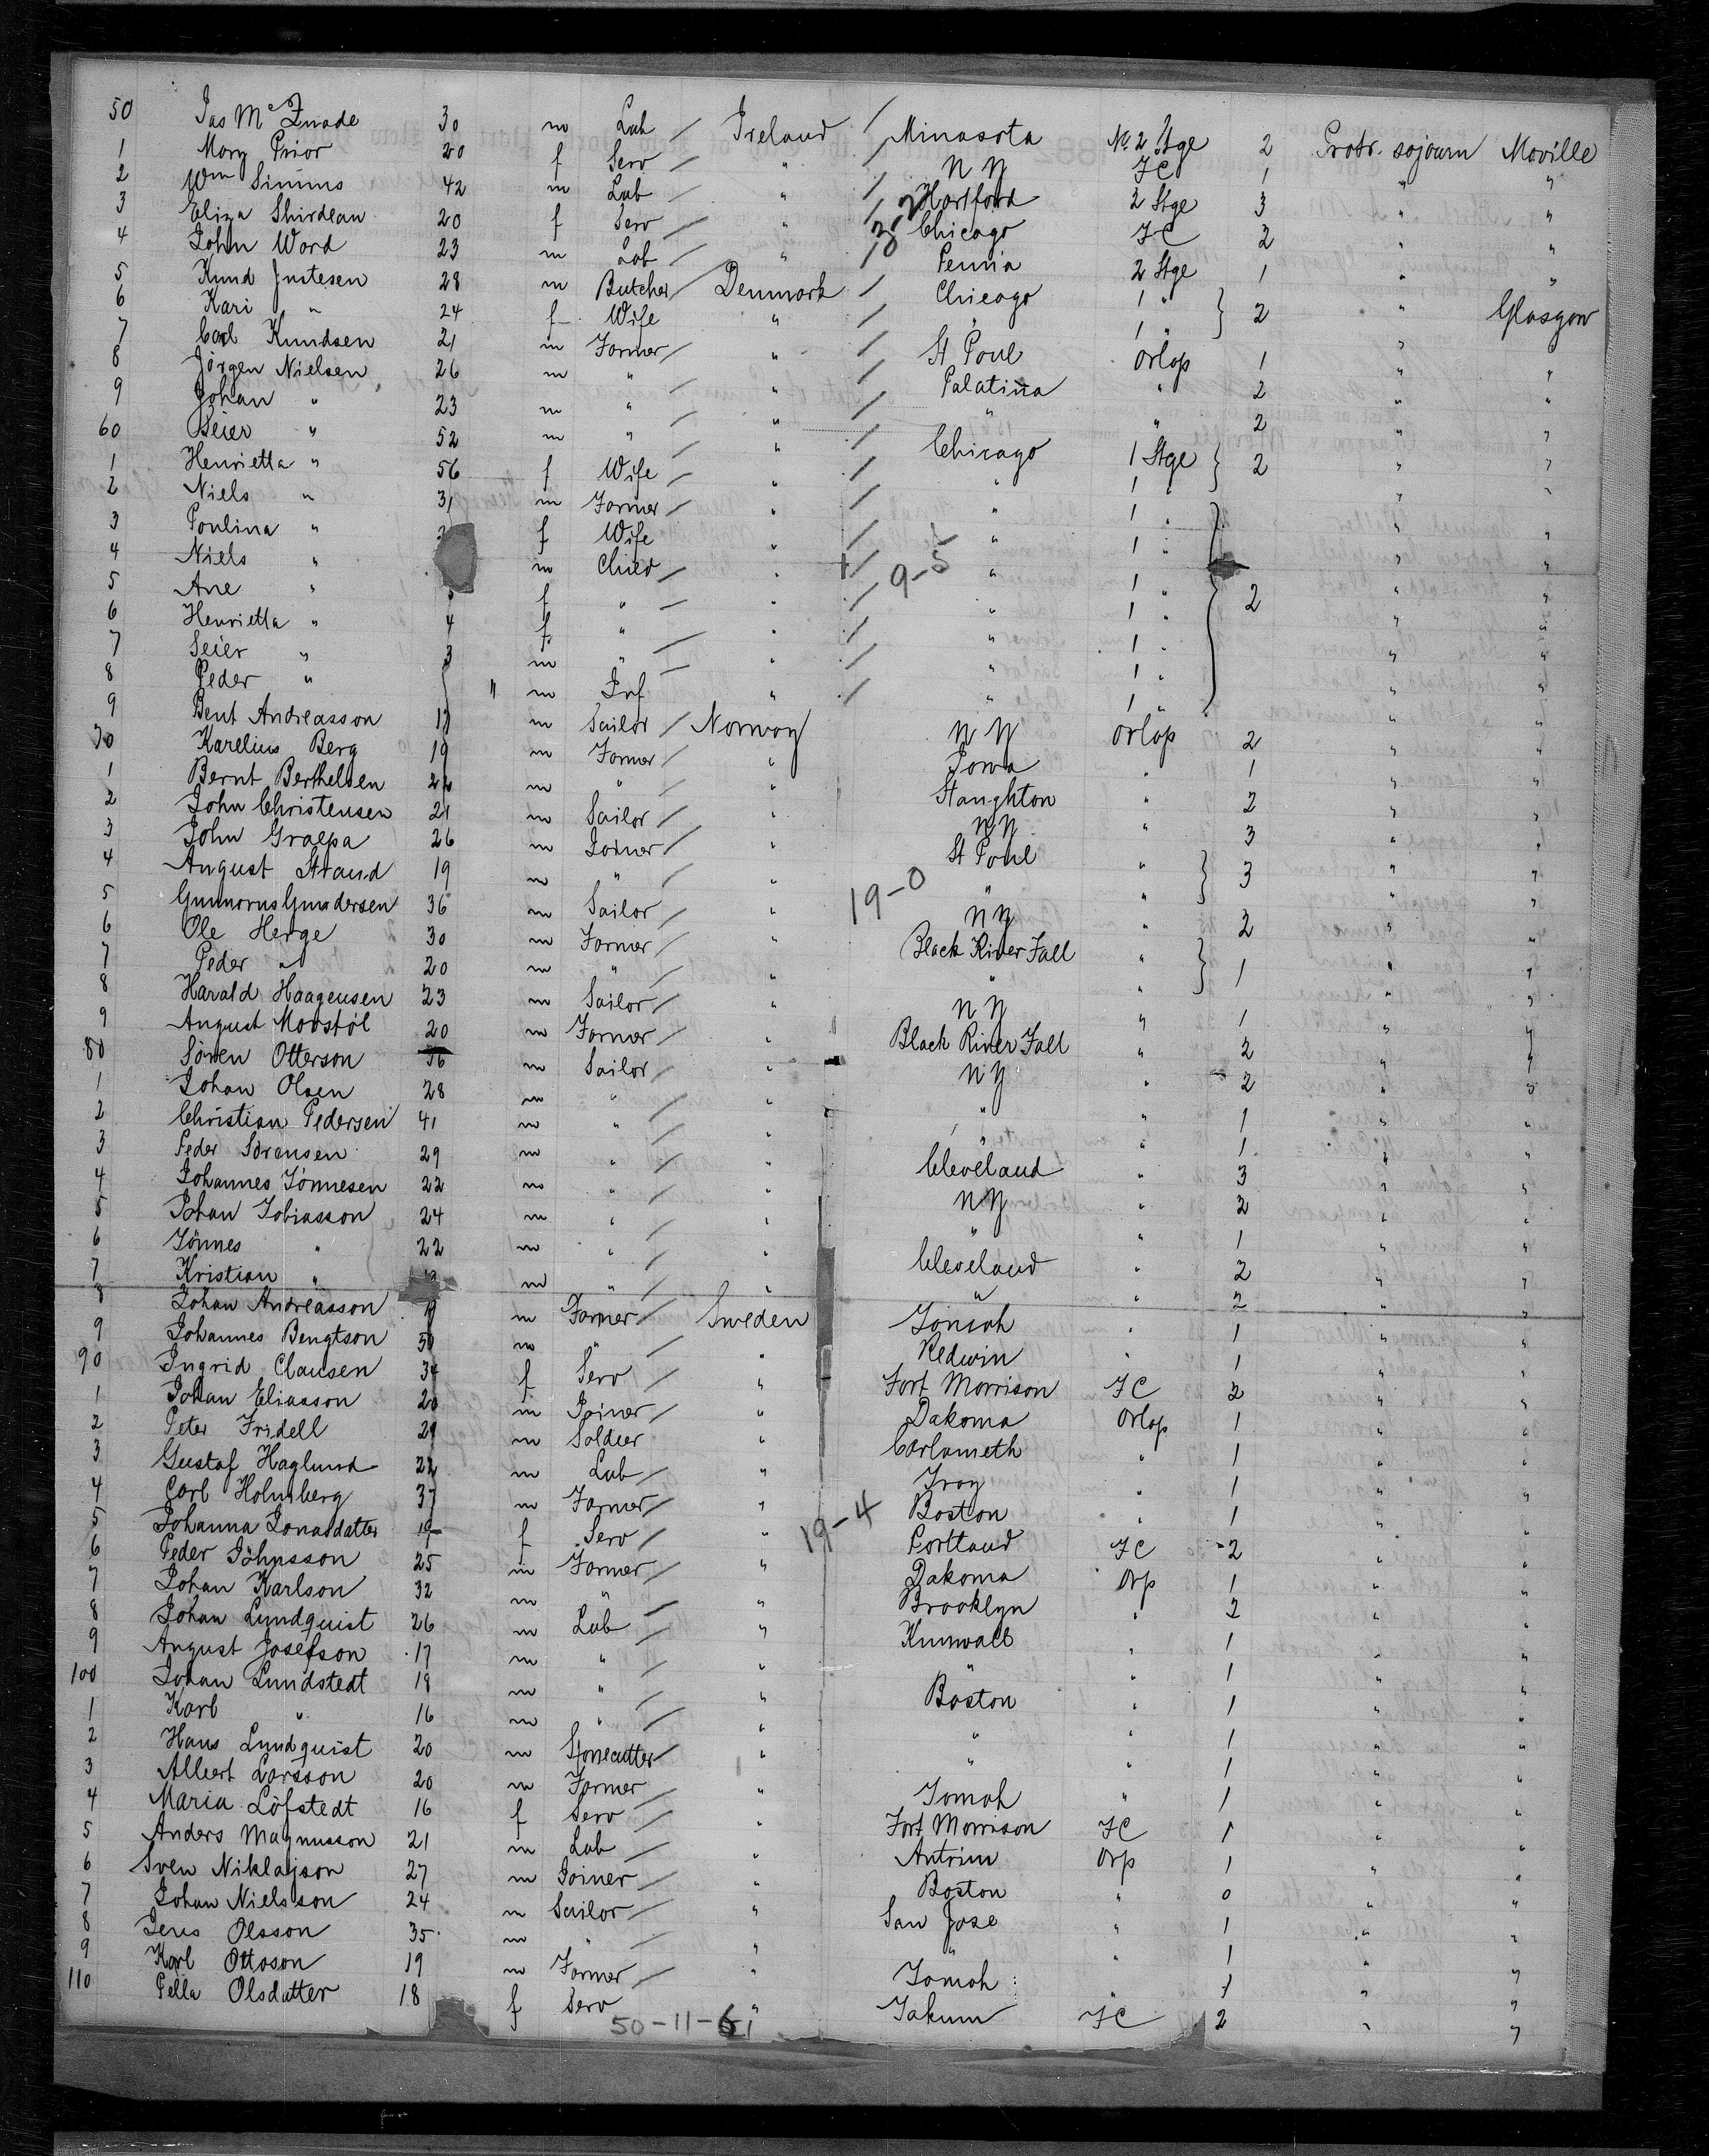 50 Jas McQuade 30 m Lab / Ireland / Minasota No. 2 Stge 2 Protr. sojourn Moville
1 Mary Prior 20 f Serv / " / N Y F C 1 " "
2 Wm Simms 42 m Lab / " / Hartford 2 Stge 3 " "
3 Eliza 20 f Serv / " / Chicago F C 2 " "
4 John Word 23 m Lab / " / Penna 2 Stge 1 " "
5 Knud Justesen 28 m Butcher / Denmark / Chicago 1 " } 2 " Glasgow
6 Kari " 24 f Wife " / " 1 " " "
7 Carl Knudsen 21 m Farmer / " / St Paul Orlop 1 " "
8 Jörgen Nielsen 26 m " " / Palatina " 2 " "
9 Johan " 23 m " / " / " " 2 " "
60 Seier " 52 m " / " / Chicago 1 Stge } 2 " "
1 Henrietta " 56 f Wife / " / " 1 " " "
2 Niels " 31 m Farmer / " / " 1 " } " "
3 Poulina " f Wife " / " 1 " " "
4 Niels " m Child / " / 19-5 " 1 " " "
5 Ane " f " / " / " 1 " 2 " "
6 Henrietta " 4 f " / " / " 1 " " "
7 Seier " 3 m " / " / " 1 " " "
8 Peder " " m Inf " / " 1 " " "
9 Bent Andreasson 17 m Sailor / Norway N Y Orlop 2 " "
70 Karelius Berg 19 m Farmer / " Iowa " 1 " "
1 Bernt Berthelsen 22 m " / " Staughton " 2 " "
2 John Christensen 21 m Sailor / " N Y " 3 " "
3 John Graepa 26 m Joiner / " St Paul " } 3 " "
4 August Strand 19 m " / " 19-0 " " " "
5 Gunnorus Gundersen 36 m Sailor / " N Y " 2 " "
6 Ole Herge 30 m Farmer / " Black River Fall " } 1 " "
7 Peder " 20 m " / " " " " "
8 Harald Haagensen 23 m Sailor / " N Y " 1 " "
9 August Movstöl 20 m Farmer / " Black River Fall " 2 " "
80 Sören Otterson 36 m Sailor / " N Y " 2 " "
1 Johan Olsen 28 m " / " " " 1 " "
2 Christian Pedersen 41 m " / " " " 1 " "
3 Peder Sörensen 29 m " / " Cleveland " 3 " "
4 Johannes Tönnesen 22 m " / " N Y " 2 " "
5 Johan Tobiasson 24 m " / " " " 1 " "
6 Tönnes " 22 m " / " Cleveland " 2 " "
7 Kristian " m " / " " " 2 " "
8 Johan Andreasson 19 m Farmer / Sweden Tomah " 1 " "
9 Johannes Bengtson 50 m " / " Redwin " 1 " "
90 Ingrid Clausen 34 f Serv / " Fort Morrison F C 2 " "
1 Johan Eliasson 20 m Joiner / " Dakoma Orlop 1 " "
2 Peter Fridell 29 m Soldier " Carlameth " 1 " "
3 Gustaf Haglund 22 m Lab / " Troy " 1 " "
4 Carl Holmberg 37 m Farmer / " Boston " 1 " "
5 Johanna Jonasdatter 19 f Serv / " 19-4 Portland F C 2 " "
6 Peder Jöhnsson 25 m Farmer / " Dakoma Orp 1 " "
7 Johan Karlson 32 m " / " Brooklyn " 2 " "
8 Johan Lundquist 26 m Lab / " " 1 " "
9 August Josefson 17 m " / " " " 1 " "
100 Johan Lundstedt 18 m " / " Boston " 1 " "
1 Karl " 16 m " / " " " 1 " "
2 Hans Lundquist 20 m Stonecutter / " " " 1 " "
3 Albert Larsson 20 m Farmer / " Tomah " 1 " "
4 Maria Löfstedt 16 f Serv / " Fort Morrison F C 1 " "
5 Anders Magnusson 21 m Lab / " Antrim Orp 1 " "
6 Sven Niklajson 27 m Joiner / " Boston " 0 " "
7 Johan Nielsson 24 m Sailor / " San Jose " 1 " "
8 Jens Olsson 35 m " / " " " 1 " "
9 Karl Ottoson 19 m Farmer / " Tomah " 1 " "
110 Pella Olsdatter 18 f Serv " Takum F C 2 " "
50-11-61